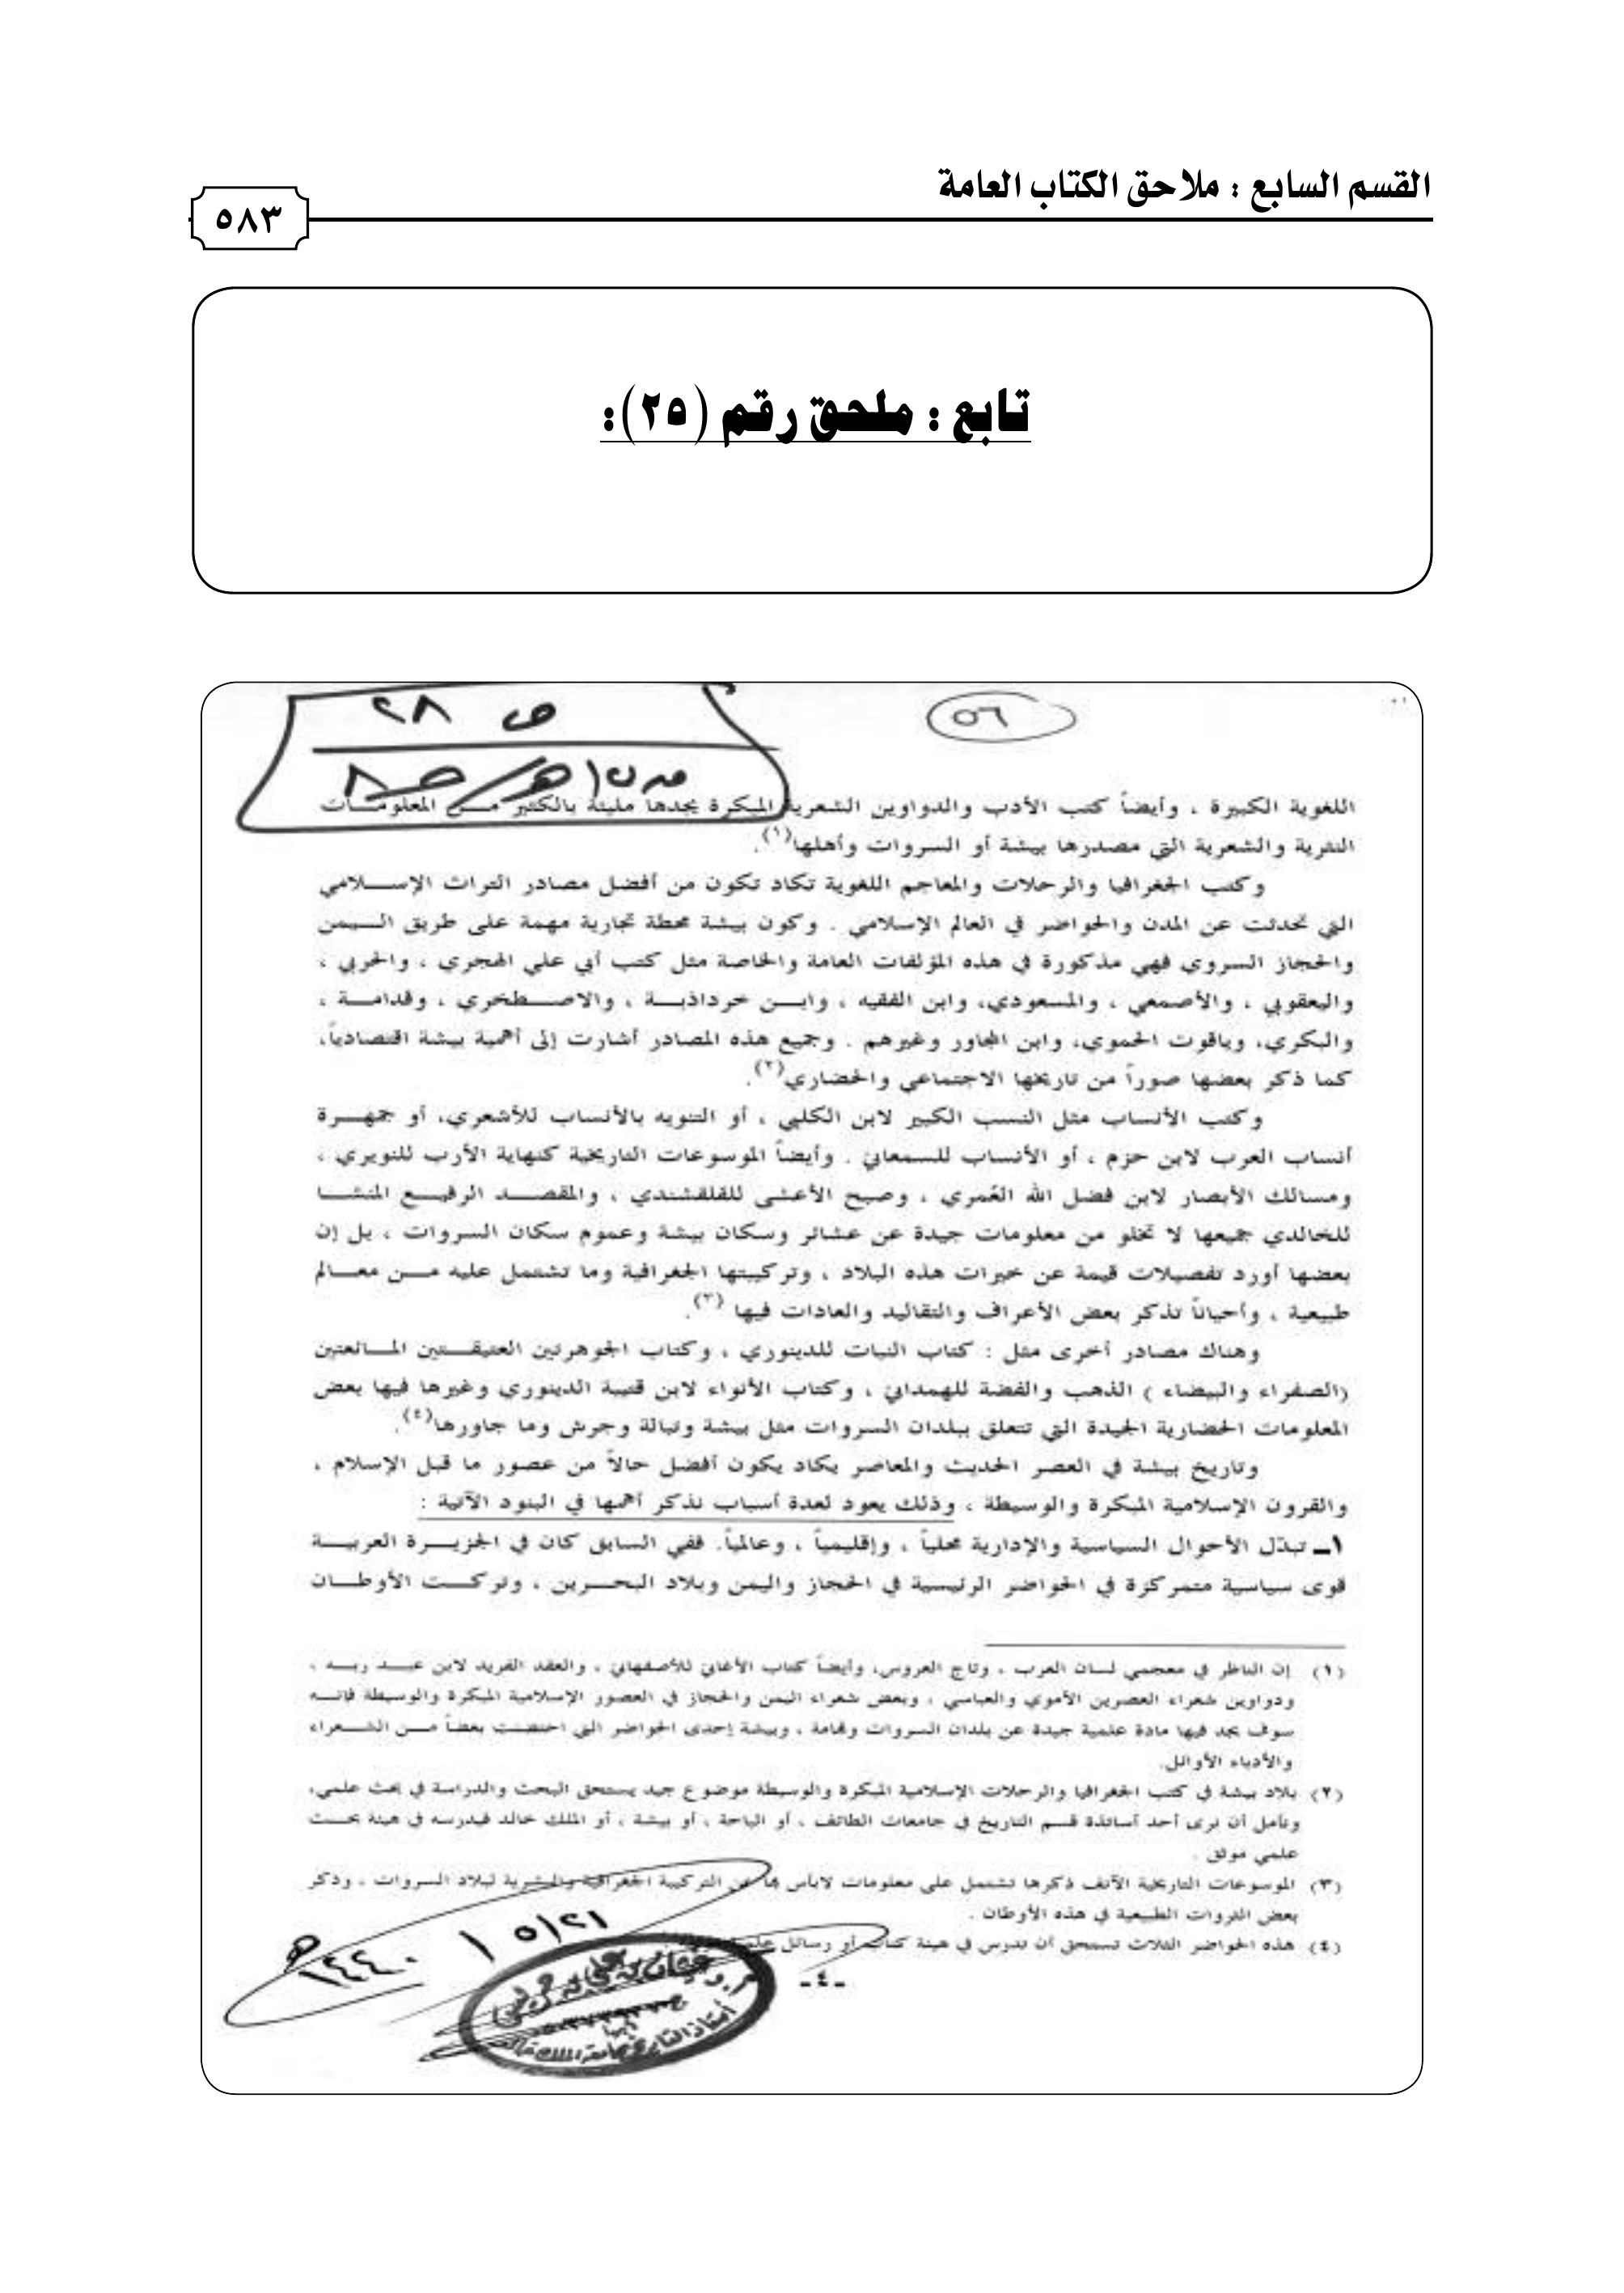 القسم السابع : ملاحق الكتاب العامة
٥٨٣
تابع : ملحق رقم (٢٥):
ص ٢٨
٥٦
اللغوية الكبيرة ، وأيضاً كتب الأدب والدواوين الشعرية المبكرة يجدها مليئة بالكثير مـن المعلومـات
النثرية والشعرية التي مصدرها بيشة أو السروات وأهلها(١).
وكتب الجغرافيا والرحلات والمعاجم اللغوية تكاد تكون من أفضل مصادر التراث الإســلامي
التي تحدثت عن المدن والحواضر في العالم الإسلامي . وكون بيشة محطة تجارية مهمة على طريق الـيمن
والحجاز السروي فهي مذكورة في هذه المؤلفات العامة والخاصة مثل كتب أبي علي الهجري ، والحربي ،
واليعقوبي ، والأصمعي ، والمسعودي، وابن الفقيه ، وابـن خرداذبـة ، والاصـطخري ، وقدامـة ،
والبكري، وياقوت الحموي، وابن المجاور وغيرهم . وجميع هذه المصادر أشارت إلى أهمية بيشة اقتصادياً،
كما ذكر بعضها صوراً من تاريخها الاجتماعي والحضاري(٢).
وكتب الأنساب مثل النسب الكبير لابن الكلبي ، أو التنويه بالأنساب للأشعري، أو جمهـرة
أنساب العرب لابن حزم ، أو الأنساب للسمعاني . وأيضاً الموسوعات التاريخية كنهاية الأرب للنويري ،
ومسالك الأبصار لابن فضل الله العُمري ، وصبح الأعشى للقلقشندي ، والمقصـد الرفيـع المنشـا
للخالدي جميعها لا تخلو من معلومات جيدة عن عشائر وسكان بيشة وعموم سكان السروات ، بل إن
بعضها أورد تفصيلات قيمة عن خيرات هذه البلاد ، وتركيبتها الجغرافية وما تشتمل عليه مـن معـالم
طبيعية ، وأحياناً تذكر بعض الأعراف والتقاليد والعادات فيها (٣).
وهناك مصادر أخرى مثل : كتاب النبات للدينوري ، وكتاب الجوهرتين العتيقـتين المـائعتين
(الصفراء والبيضاء ) الذهب والفضة للهمداني ، وكتاب الأنواء لابن قتيبة الدينوري وغيرها فيها بعض
المعلومات الحضارية الجيدة التي تتعلق ببلدان السروات مثل بيشة وتبالة وجرش وما جاورها(٤).
وتاريخ بيشة في العصر الحديث والمعاصر يكاد يكون أفضل حالاً من عصور ما قبل الإسلام ،
والقرون الإسلامية المبكرة والوسيطة ، وذلك يعود لعدة أسباب نذكر أهمها في البنود الآتية :
١ـ تبدّل الأحوال السياسية والإدارية محلياً ، وإقليمياً ، وعالمياً. ففي السابق كان في الجزيـرة العربيـة
قوى سياسية متمركزة في الحواضر الرئيسية في الحجاز واليمن وبلاد البحـرين ، وتركـت الأوطـان
(١) إن الناظر في معجمي لسان العرب ، وتاج العروس، وأيضاً كتاب الأغاني للأصفهاني ، والعقد الفريد لابن عبـد ربـه ،
ودواوين شعراء العصرين الأموي والعباسي ، وبعض شعراء اليمن والحجاز في العصور الإسلامية المبكرة والوسيطة فإنـه
سوف يجد فيها مادة علمية جيدة عن بلدان السروات وتهامة ، وبيشة إحدى الحواضر التي احتضنت بعضاً مـن الشـعراء
والأدباء الأوائل.
(٢) بلاد بيشة في كتب الجغرافيا والرحلات الإسلامية المبكرة والوسيطة موضوع جيد يستحق البحث والدراسة في بحث علمي،
ونأمل أن نرى أحد أساتذة قسم التاريخ في جامعات الطائف ، أو الباحة ، أو بيشة ، أو الملك خالد فيدرسه في هيئة بحـث
علمي موثق .
(٣) الموسوعات التاريخية الآنف ذكرها تشتمل على معلومات لابأس بها عن التركيبة الجغرافية والبشرية لبلاد السروات ، وذكر
بعض الثروات الطبيعية في هذه الأوطان .
(٤) هذه الحواضر الثلاث تستحق أن تدرس في هيئة كتاب أو رسائل
ـ٤ـ
٥/٢١ / ١٤٤٠هـ
أستاذ التاريخ